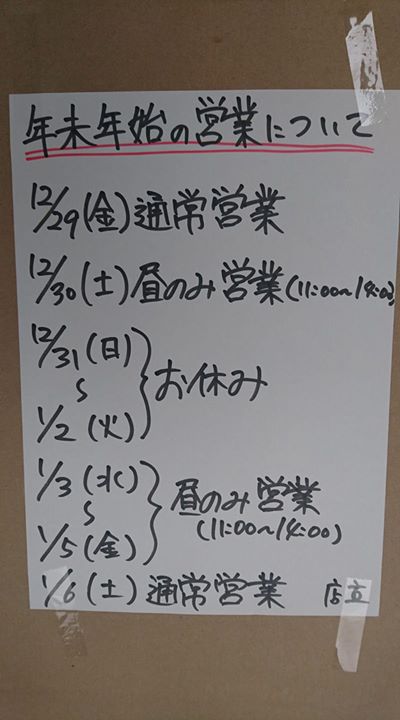 年末年始の営業について
12/29(金)通常営業
12/30(土)昼のみ営業(11:00~14:00)
12/31(日)
~
1/2(火)
お休み
1/3(水)
~
1/5(金)
昼のみ営業
(11:00~14:00)
1/6(土)通常営業 店主